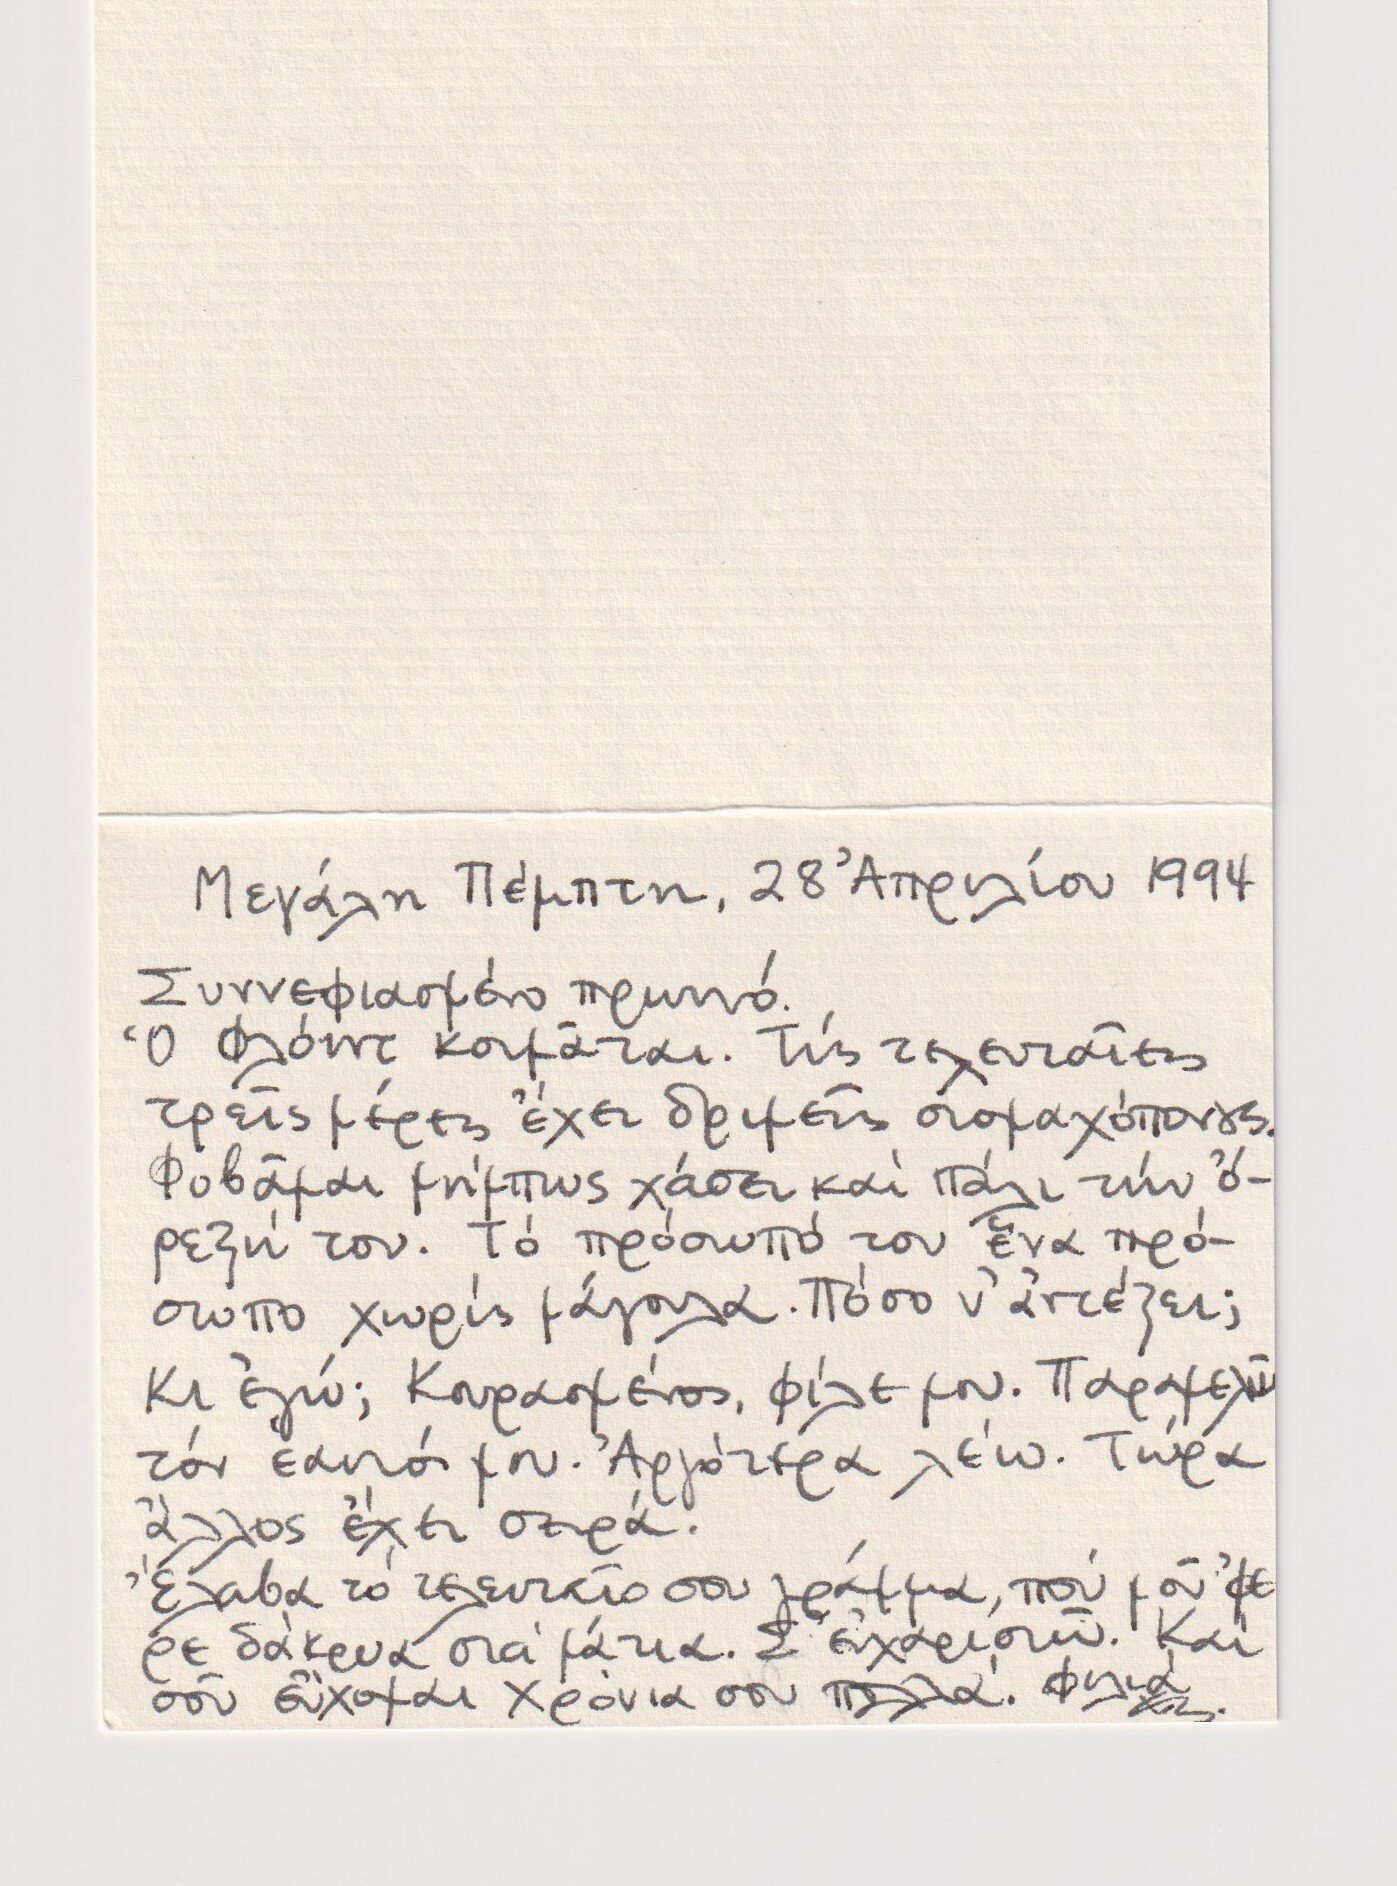 Μεγάλη Πέμπτη, 28 Ἀπριλίου 1994
Συννεφιασμένο πρωινό.
Ὁ Φλόιντ κοιμᾶται. Τίς τελευταῖες
τρεῖς μέρες ἔχει δριμεῖς στομαχόπονους.
Φοβᾶμαι μήπως χάσει καί πάλι τήν ὄ-
ρεξή του. Τό πρόσωπό του ἕνα πρό-
σωπο χωρίς μάγουλα. Πόσο ν' ἀντέξει;
Κι ἐγώ; Κουρασμένος, φίλε μου. Παραμελῶ
τόν ἑαυτό μου. Ἀργότερα λέω. Τώρα
ἄλλος ἔχει σειρά.
Ἔλαβα τό τελευταῖο σου γράμμα, πού μοῦ 'φε
ρε δάκρυα στά μάτια. Σ' εὐχαριστῶ. Καί
σοῦ εὔχομαι χρόνια σου πολλά. Φιλιά